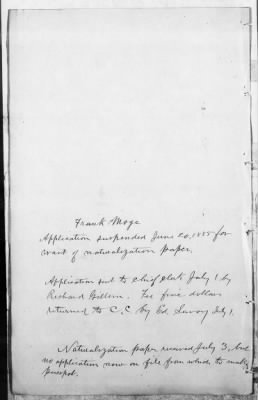 Frank Moge
Application suspended June 20, 1885 for
want of naturalization paper.
Application sent to chief clerk July 1 by
Richard Fee five dollars
returned to C. C. by Ed. Savoy July 1.
Naturalization paper received July 3, but
no application now on file from which to make
passport.